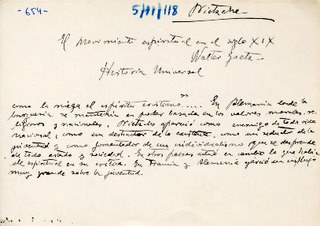 -654-
5/01/118
Nietzsche
El movimiento espiritual en el siglo XIX
Walter Goetz
Historia Universal
como la niega el espíritu cristiano.... En Alemania donde la
burguesía se mantenía en poder basada en los valores morales, re-
ligiosos y nacionales. Nietzsche apareció como enemigo de toda vida
nacional, como un destructor de la como un seductor de la
juventud y como fomentador de un individualismo que se desprende
de todo estado y sociedad. En otros países actuó en cambio lo que había
de espiritual en su crítica. En Francia y Alemania ejerció un influjo
muy grande sobre la juventud.